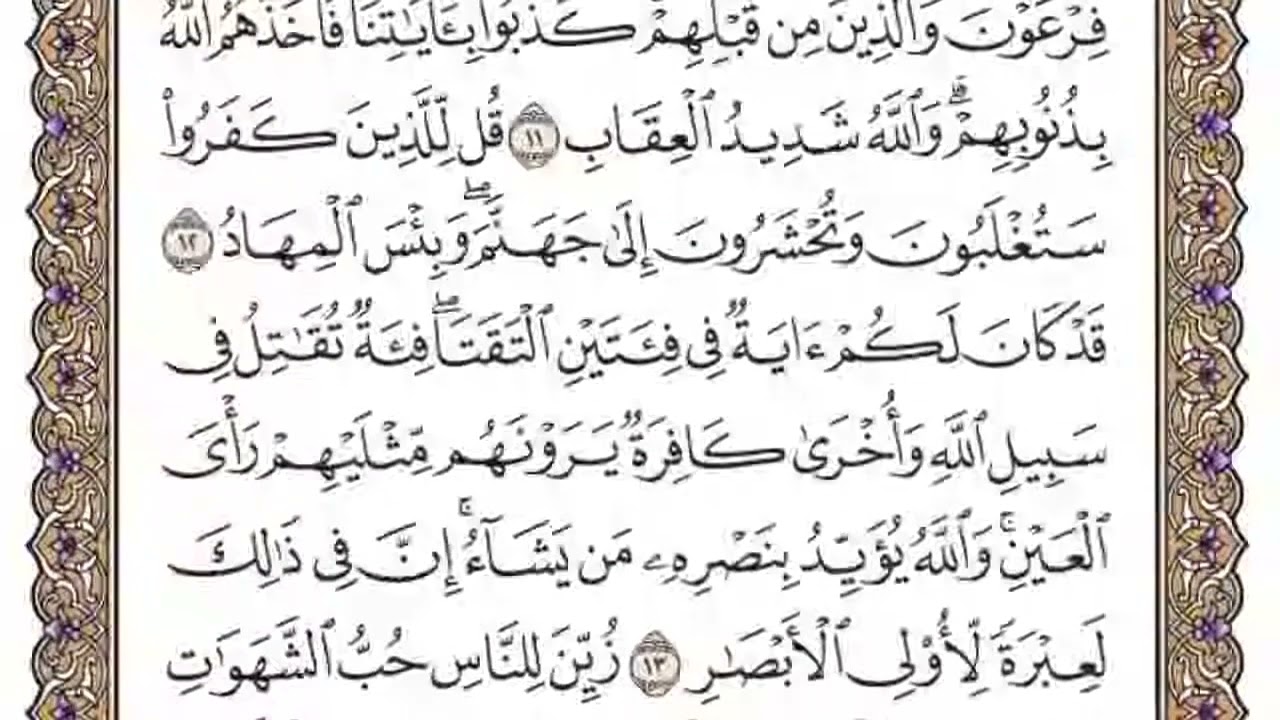 فِرۡعَوۡنَ وَٱلَّذِينَ مِن قَبۡلِهِمۡۚ كَذَّبُواْ بِـَٔايَٰتِنَا فَأَخَذَهُمُ ٱللَّهُ
بِذُنُوبِهِمۡۗ وَٱللَّهُ شَدِيدُ ٱلۡعِقَابِ ١١ قُل لِّلَّذِينَ كَفَرُواْ
سَتُغۡلَبُونَ وَتُحۡشَرُونَ إِلَىٰ جَهَنَّمَۖ وَبِئۡسَ ٱلۡمِهَادُ ١٢
قَدۡ كَانَ لَكُمۡ ءَايَةٞ فِي فِئَتَيۡنِ ٱلۡتَقَتَاۖ فِئَةٞ تُقَٰتِلُ فِي
سَبِيلِ ٱللَّهِ وَأُخۡرَىٰ كَافِرَةٞ يَرَوۡنَهُم مِّثۡلَيۡهِمۡ رَأۡيَ
ٱلۡعَيۡنِۚ وَٱللَّهُ يُؤَيِّدُ بِنَصۡرِهِۦ مَن يَشَآءُۚ إِنَّ فِي ذَٰلِكَ
لَعِبۡرَةٗ لِّأُوْلِي ٱلۡأَبۡصَٰرِ ١٣ زُيِّنَ لِلنَّاسِ حُبُّ ٱلشَّهَوَٰتِ